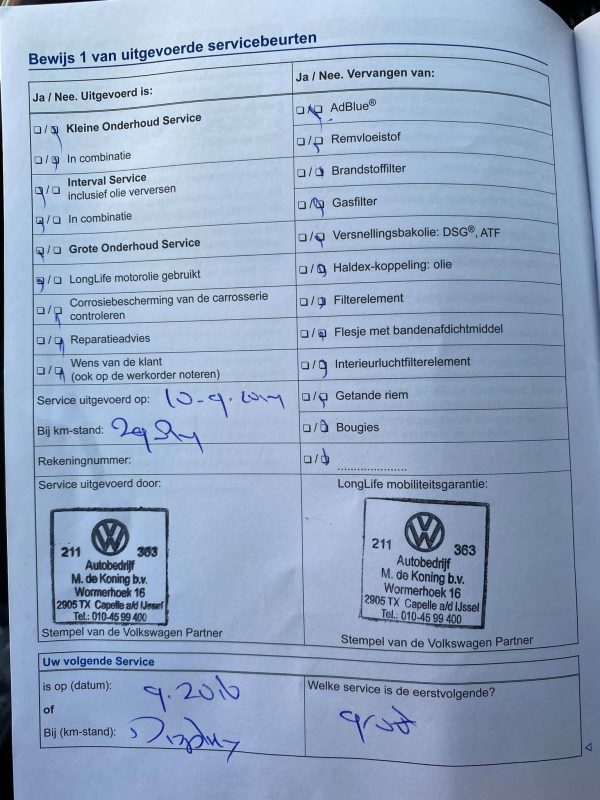 Bewijs 1 van uitgevoerde servicebeurten
Ja / Nee. Uitgevoerd is:
/ Kleine Onderhoud Service
/ In combinatie
/ Interval Service
inclusief olie verversen
/ In combinatie
/ Grote Onderhoud Service
/ LongLife motorolie gebruikt
/ Corrosiebescherming van de carrosserie
controleren
/ Reparatieadvies
/ Wens van de klant
(ook op de werkorder noteren)
Service uitgevoerd op: 10-9-2014
Bij km-stand:
Rekeningnummer:
Ja / Nee. Vervangen van:
/ AdBlue®
/ Remvloeistof
/ Brandstoffilter
/ Gasfilter
/ Versnellingsbakolie: DSG®, ATF
/ Haldex-koppeling: olie
/ Filterelement
/ Flesje met bandenafdichtmiddel
/ Interieurluchtfilterelement
/ Getande riem
/ Bougies
/ ......................
Service uitgevoerd door:
211 363
Autobedrijf
M. de Koning b.v.
Wormerhoek 16
2905 TX Capelle a/d IJssel
Tel.: 010-45 99 400
Stempel van de Volkswagen Partner
LongLife mobiliteitsgarantie:
211 363
Autobedrijf
M. de Koning b.v.
Wormerhoek 16
2905 TX Capelle a/d IJssel
Tel.: 010-45 99 400
Stempel van de Volkswagen Partner
Uw volgende Service
is op (datum): 9.2016
of
Bij (km-stand): Display
Welke service is de eerstvolgende?
groot